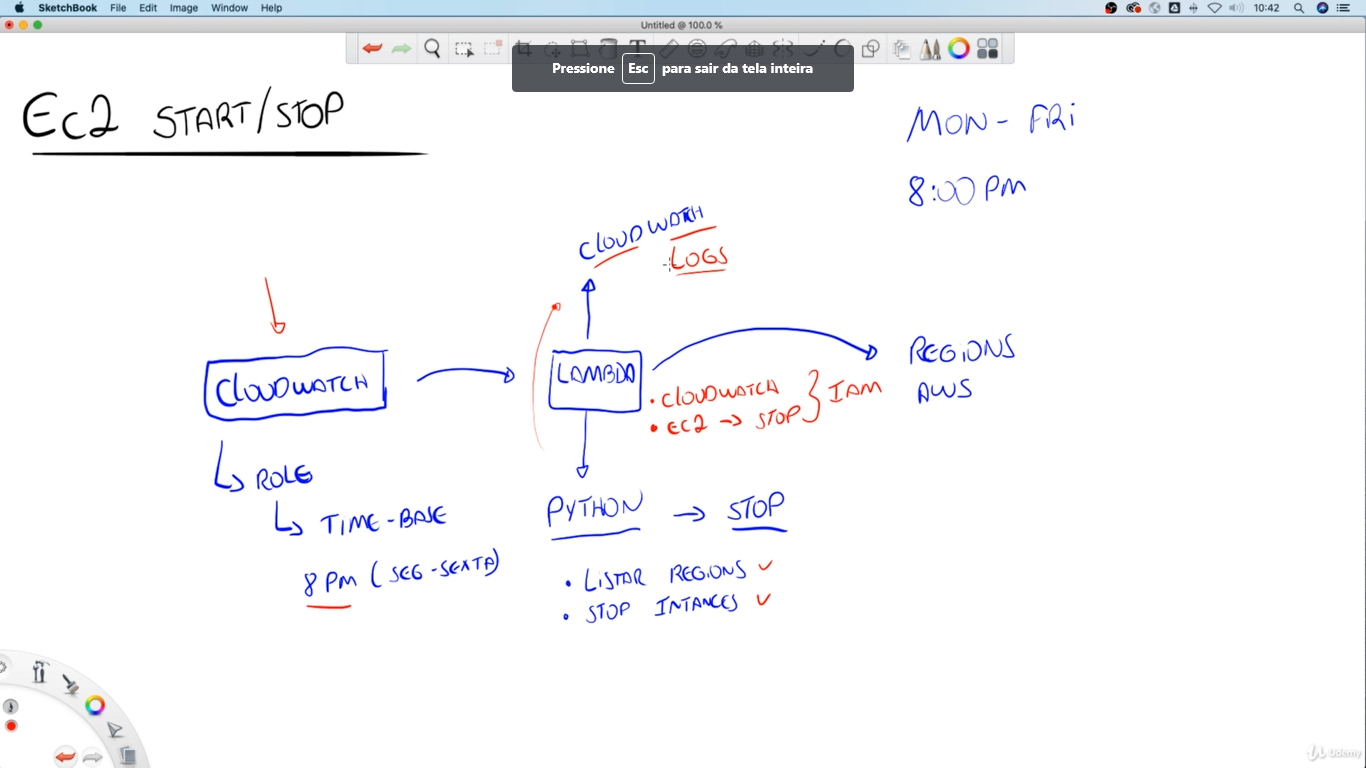 SketchBook File Edit Image Window Help
10:42
Untitled @ 100.0 %
Pressione Esc para sair da tela inteira
EC2 START/STOP
MON - FRI
8:00 PM
CLOUDWATCH
LOGS
CLOUDWATCH
LAMBDA
REGIONS
AWS
• CLOUDWATCH
• EC2 → STOP
} IAM
↳ ROLE
↳ TIME-BASE
8 PM (SEG-SEXTA)
PYTHON → STOP
• LISTAR REGIONS ✓
• STOP INTANCES ✓
Udemy